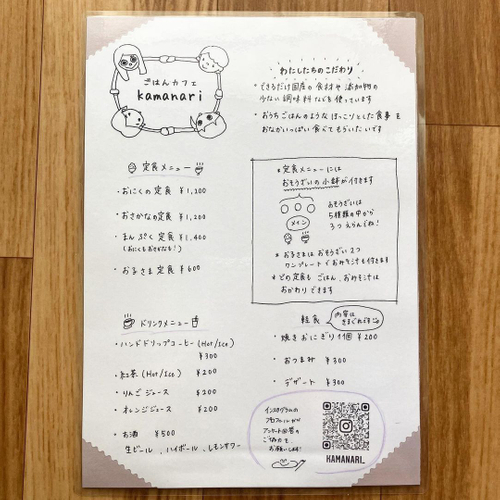 ごはんカフェ
kamanari
わたしたちのこだわり
・できるだけ国産の食材や添加物の
少ない調味料などを使っています
・おうちごはんのようなほっこりとした食事を
おなかいっぱい食べてもらいたいです
定食メニュー
・おにくの定食 ¥1,200
・おさかなの定食 ¥1,200
・まんぷく定食 ¥1,400
(おにくもおさかなも!)
・お子さま定食 ¥600
*定食メニューには
おそうざいの小鉢が付きます
おそうざいは
5種類の中から
3つえらんでね!
メイン
*お子さまはおそうざい2つ
ワンプレート(おみそ汁も付きます
*どの定食もごはん、おみそ汁は
おかわりできます
ドリンクメニュー
・ハンドドリップコーヒー(Hot/Ice)
¥300
・紅茶(Hot/Ice) ¥200
・りんごジュース ¥200
・オレンジジュース ¥200
・お酒 ¥500
生ビール、ハイボール、レモンサワー
軽食
内容は
きまぐれです
・焼きおにぎり1個 ¥200
・おつまみ ¥300
・デザート ¥300
インスタグラムの
プロフィールから
アンケート回答の
ご協力を
お願いします!
KAMANARI_